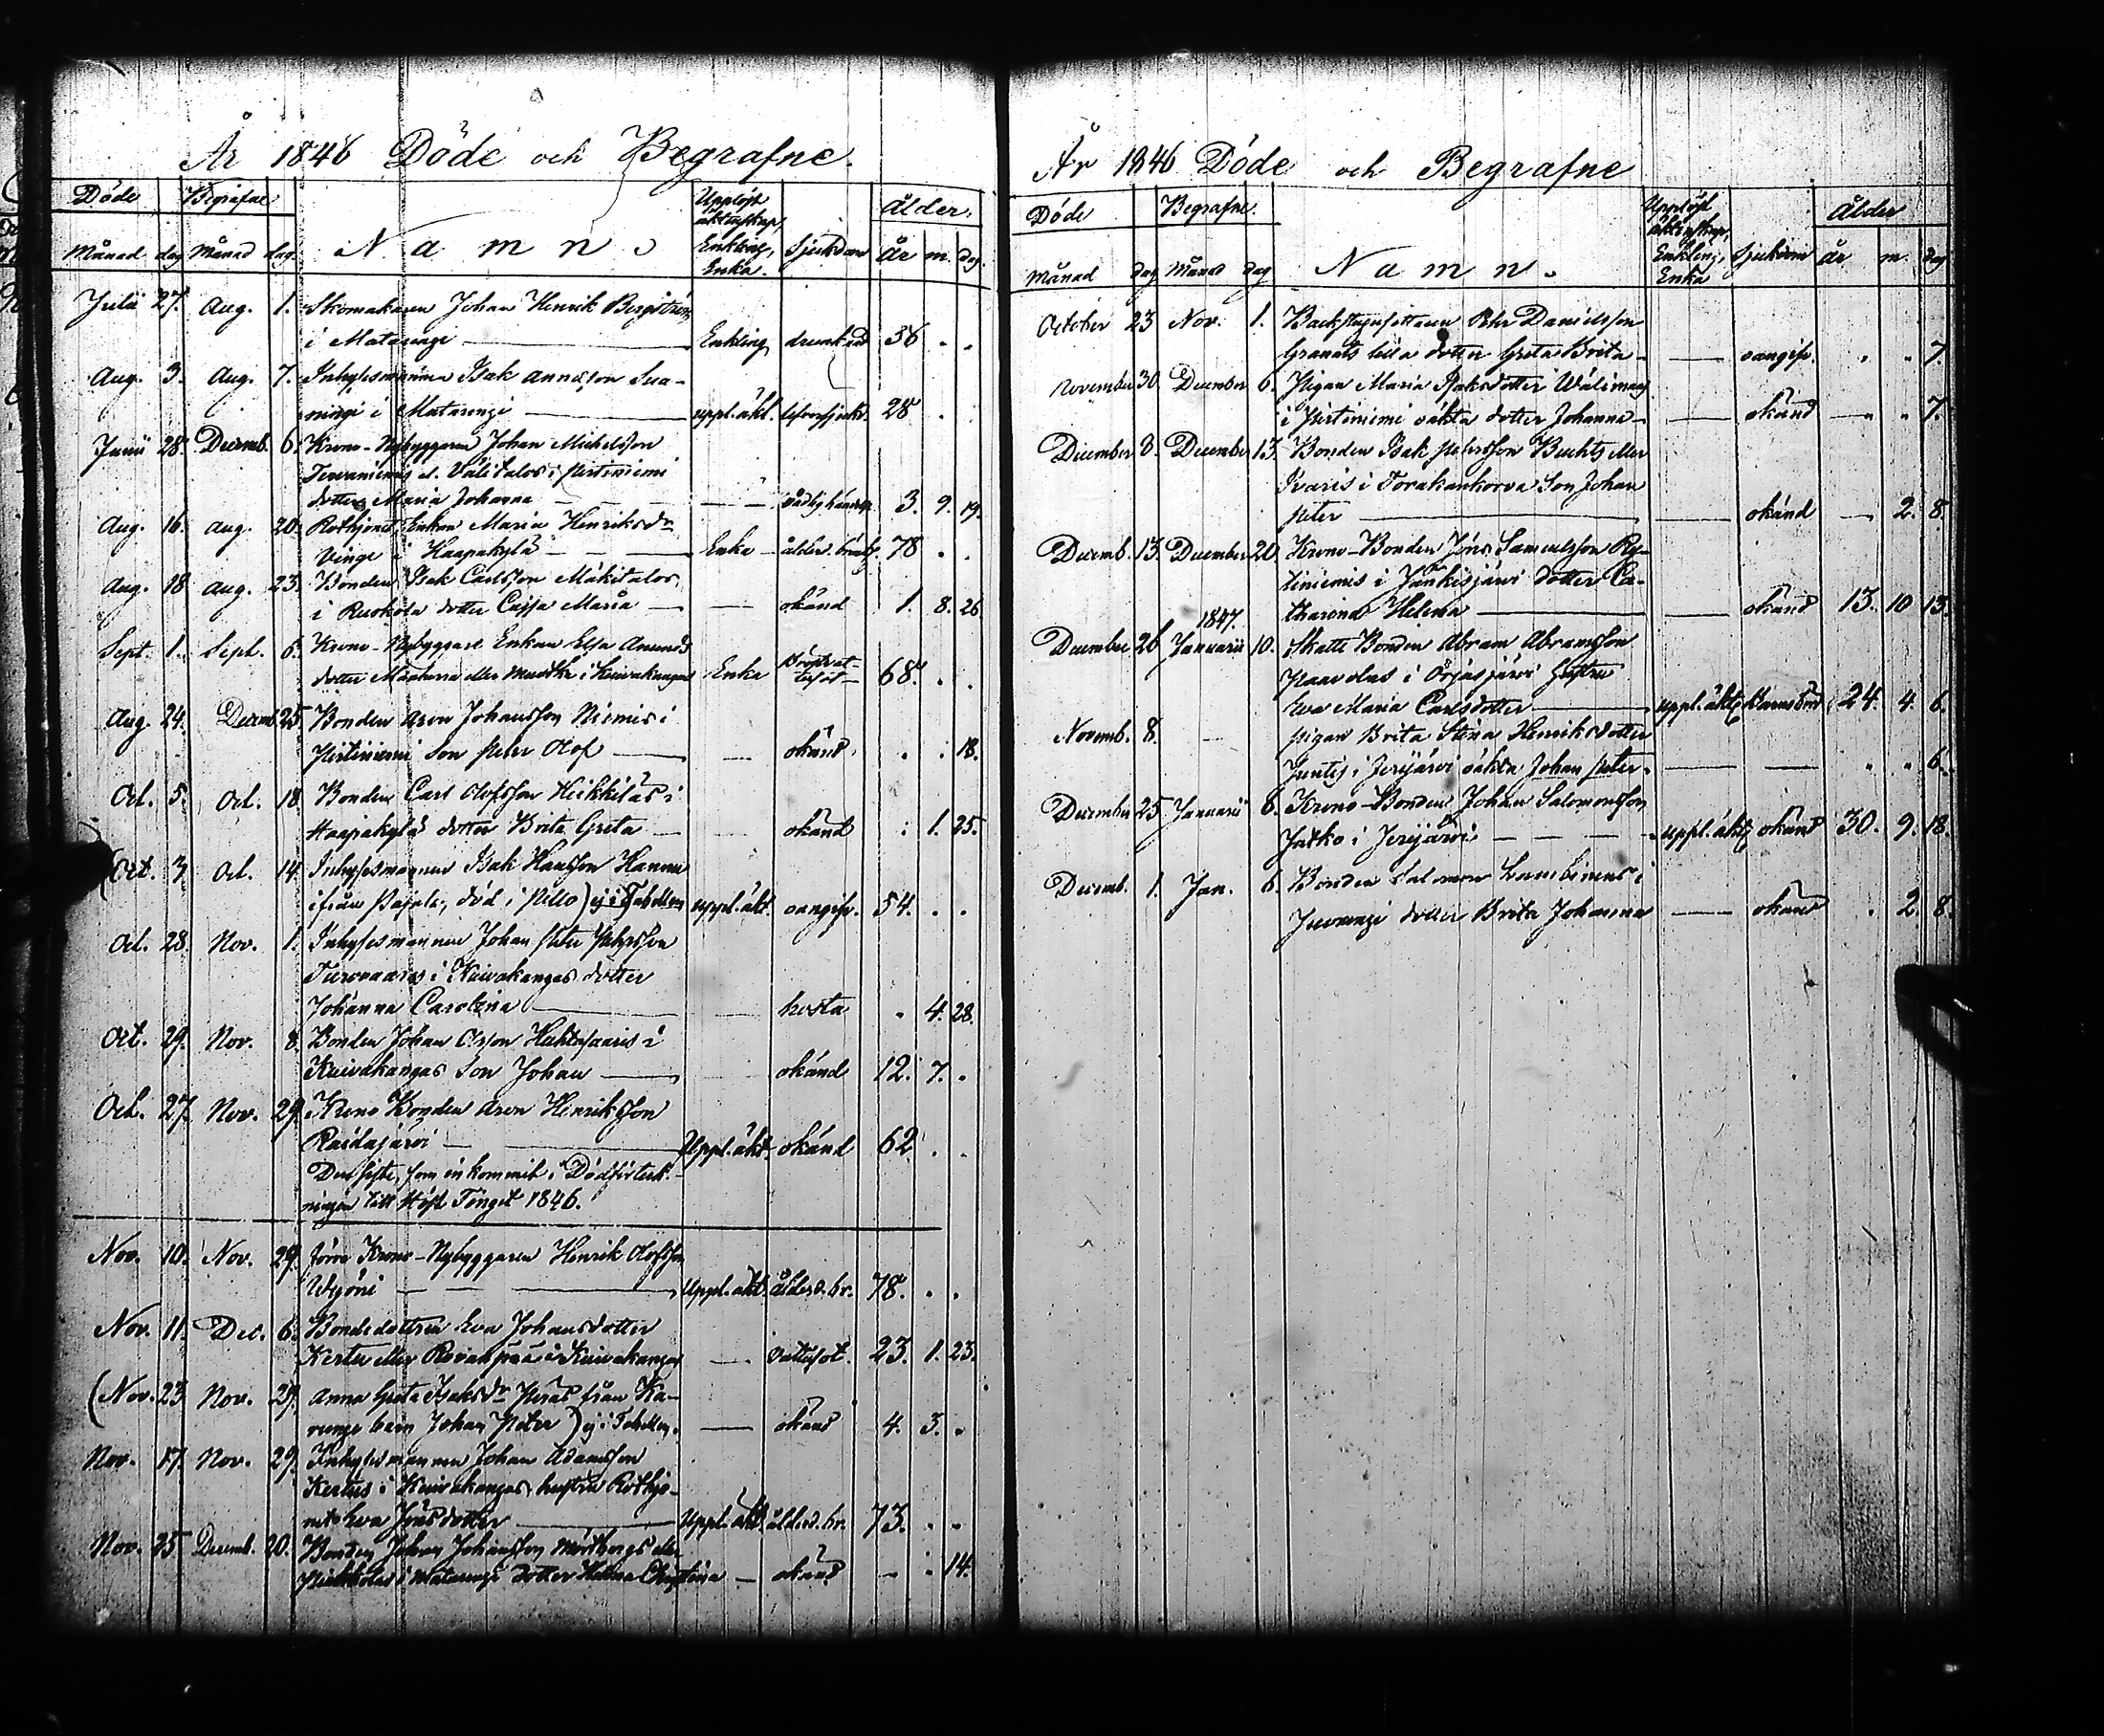 År 1846 Döde och Begrafne.
Döde Begrafne Namn. Upplöst äktenskap, Enkling, Enka Sjukdom Ålder.
Månad dag Månad dag År m. dag.
Julii 27. Aug. 1. Skomakaren Johan Henrik Bergström
i Matarengi Enkling drunknad 36 . .
Aug. 3. Aug. 7. Inhysesmannen Isak
i Matarengi uppl. äkt. 28 .
Junii 28. Decemb. 6. Krono-Nybyggaren Johan Michelsson
i Pirtiniemi
dotter Maria Johanna 3. 9. 19.
Aug. 16. Aug. 20. Enkan Maria Henriksdr
Vinge i Haapakylä Enka 78 . .
Aug. 18 Aug. 23. Bonden Isak Carlsson Mäkitalos
i Ruokola dotter Cajsa Maria okänd 1. 8. 26
Sept. 1. Sept. 6. Krono-Nybyggare Enkan Elsa
dotter eller i Kuivakangas Enka 68. . .
Aug. 24. Decemb. 25. Bonden Aron Johansson Niemis i
Pirtiniemi son Peter Olof okänd . . 18.
Oct. 5. Oct. 18. Bonden Carl Olofsson Heikkiläs i
Haapakylä dotter Brita Greta okänd . 1. 25.
(Oct. 3 Oct. 14. Inhysesmannen Isak Hansson Hannu
ifrån Pajala, död i Pello) ej i Tabellen uppl. äkt. oangifv. 54. . .
Oct. 28. Nov. 1. Inhysesmannen Johan Peter Pehrsson
i Kuivakangas dotter
Johanna Carolina hosta . 4. 28.
Oct. 29. Nov. 8. Bonden Johan Olsson Huhtasaaris i
Kuivakangas Son Johan okänd 12. 7. .
Oct. 27. Nov. 29. Krono Bonden Aron Henriksson
Raidajärvi Uppl. äkt. okänd 62 . .
Den siste, som inkommit i Dödförteck-
ningen till Höst Tinget 1846.
Nov. 10. Nov. 29. förra Krono-Nybyggaren Henrik Olofsson
Uppl. äkt. ålderd. br. 78. . .
Nov. 11. Dec. 6. Bondedottren Eva Johansdotter
Kertu eller Rovanpää i Kuivakangas vattusot. 23. 1. 23.
(Nov. 23 Nov. 29. Anna Greta Isaksdr från Ka-
runge barn Johan Peter) ej i Tabellen. okänd 4. 3. .
Nov. 17. Nov. 29. Inhysesmannen Johan Adamsson
Kertus i Kuivakangas, hustru
Eva Jönsdotter Uppl. äkt. ålderd. br. 73. . .
Nov. 25 Decemb. 20. Bonden Johan Johansson eller
i Matarengi dotter Helena Christina okänd . . 14.
År 1846 Döde och Begrafne
Döde Begrafne. Namn. Upplöst äktenskap, Enkling, Enka Sjukdom Ålder
Månad dag Månad dag år m. dag
October 23 Nov. 1. Backstugusittaren Pehr Danielsson
Granats lilla dotter Greta Brita oangifv. . . 7.
November 30. December 6. Pigan Maria Isaksdotter
i Pirtiniemi oäkta dotter Johanna okänd . . 7.
December 8. December 13. Bonden Isak Pehrsson Buchts eller
Ivaris i Torakankorva Son Johan
Peter okänd 2. 8.
Decemb. 13. December 20. Krono-Bonden Jöns Samuelsson Ky-
tiniemis i Jänkisjärvi dotter Ca-
tharina Helena okänd 13. 10 13.
1847.
December 26 Januarii 10. Skatte Bonden Abram Abramsson
Paavolas i hustru
Eva Maria Carlsdotter uppl. äkt. barnsbörd 24. 4. 6.
Novemb. 8. Pigan Brita Stina Henriksdotter
i Jerijärvi oäkta Johan Peter . . 6.
December 25 Januarii 6. Krono-Bonden Johan Salomonsson
Jatko i Jerijärvi uppl. äkt. okänd 30. 9. 18.
Decemb. 1. Jan. 6. Bonden Salomon i
Juoxengi dotter Brita Johanna okänd . 2. 8.